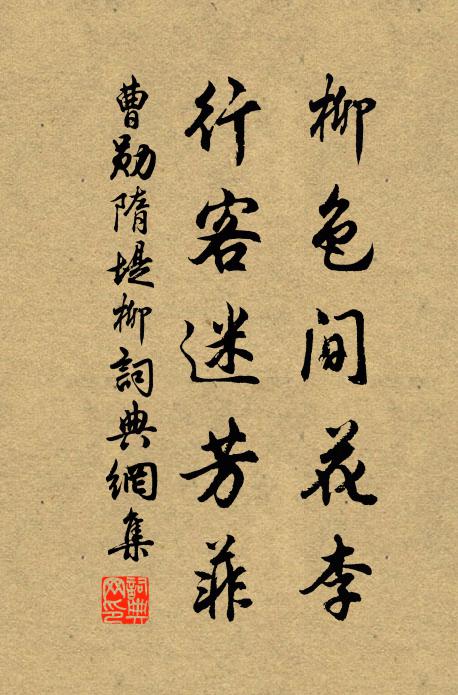 柳色間花李
行客迷芳菲
曹勛隋堤柳詞典網集
詞典
网印